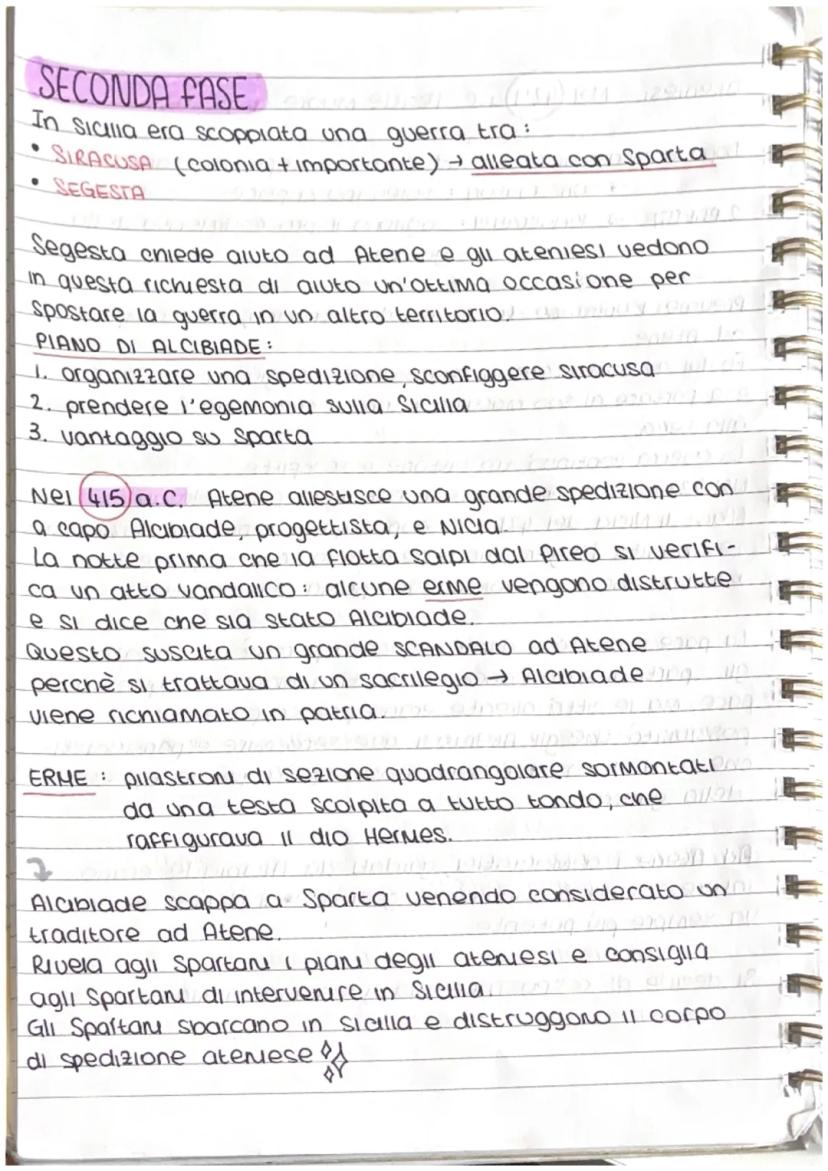 SECONDA FASE
In Sicilia era scoppiata una guerra tra :
• SIRACUSA (colonia + importante) → alleata con Sparta
• SEGESTA
Segesta chiede aiuto ad Atene e gli ateniesi vedono
in questa richiesta di aiuto un'ottima occasione per
spostare la guerra in un altro territorio.
PIANO DI ALCIBIADE :
1. organizzare una spedizione, sconfiggere Siracusa
2. prendere l'egemonia sulla Sicilia
3. vantaggio su Sparta
Nel 415 a.C. Atene allestisce una grande spedizione con
a capo Alcibiade, progettista, e Nicia.
La notte prima che la flotta salpi dal Pireo si verifi-
ca un atto vandalico : alcune erme vengono distrutte
e si dice che sia stato Alcibiade.
Questo suscita un grande SCANDALO ad Atene
perchè si trattava di un sacrilegio → Alcibiade
viene richiamato in patria.
ERME : pilastroni di sezione quadrangolare sormontati
da una testa scolpita a tutto tondo, che
raffigurava il dio Hermes.
Alcibiade scappa a Sparta venendo considerato un
traditore ad Atene.
Rivela agli Spartani i piani degli ateniesi e consiglia
agli Spartani di intervenire in Sicilia.
Gli Spartani sbarcano in Sicilia e distruggono il corpo
di spedizione ateniese